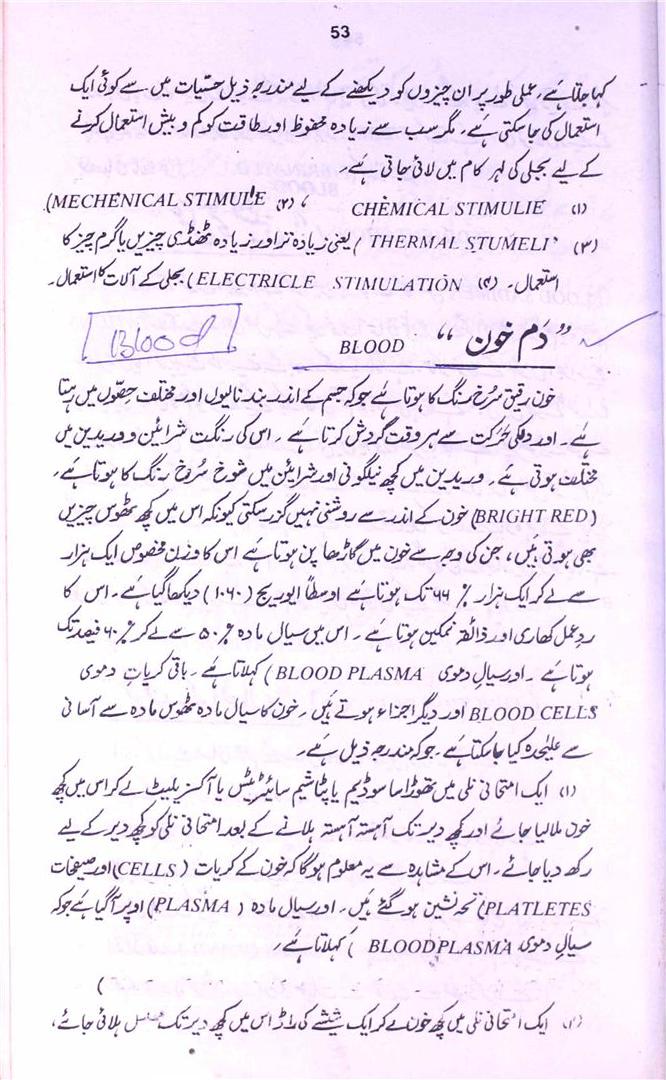 53
کہا جاتا ہے۔ عملی طور پر ان چیزوں کو دیکھنے کے لیے مندرجہ ذیل حسّیات میں سے کوئی ایک
استعمال کی جا سکتی ہے۔ مگر سب سے زیادہ محفوظ اور طاقت کو کم و بیش استعمال کرنے
کے لیے بجلی کی لہر کام میں لائی جاتی ہے۔
(۱) CHEMICAL STIMULIE ، (۲) MECHENICAL STIMULE)
(۳) THERMAL STUMELI) یعنی زیادہ تر اور زیادہ ٹھنڈی چیزیں یا گرم چیز کا
استعمال۔ (۴) ELECTRICLE STIMULATION) بجلی کے آلات کا استعمال۔
”دَم خون“ BLOOD Blood
خون رقیق سُرخ رنگ کا ہوتا ہے جو کہ جسم کے اندر بند نالیوں اور مختلف حصّوں میں رہتا
ہے۔ اور دھکی حرکت سے ہر وقت گردش کرتا ہے۔ اس کی رنگت شرائین و وریدین میں
مختلف ہوتی ہے۔ وریدین میں کچھ نیلگونی اور شرایئن میں شوخ سُرخ رنگ کا ہوتا ہے۔
(BRIGHT RED) خون کے اندر سے روشنی نہیں گزر سکتی کیونکہ اس میں کچھ ٹھوس چیزیں
بھی ہوتی ہیں، جن کی وجہ سے خون میں گاڑھا پن ہوتا ہے اس کا وزن مخصوص ایک ہزار
سے لے کر ایک ہزار ۶۶% تک ہوتا ہے اوسطاً ایوریج (۱۰۶۰) دیکھا گیا ہے۔ اس کا
ردِعمل کھاری اور ذائقہ نمکین ہوتا ہے۔ اس میں سیال مادہ ۵۰% سے لے کر ۶۰% فیصد تک
ہوتا ہے۔ اور سیالِ دموی BLOOD PLASMA) کہلاتا ہے۔ باقی کریاتِ دموی
BLOOD CELLS اور دیگر اجزاء ہوتے ہیں۔ خون کا سیال مادہ ٹھوس مادہ سے آسانی
سے علیٰحدہ کیا جا سکتا ہے۔ جو کہ مندرجہ ذیل ہے۔
(۱) ایک امتحانی نلی میں تھوڑا سا سوڈیم یا پٹاشیم سائیٹریٹس یا آگزیلیٹ لے کر اس میں کچھ
خون ملا لیا جائے اور کچھ دیر تک آہستہ آہستہ ہلانے کے بعد امتحانی نلی کو کچھ دیر کے لیے
رکھ دیا جائے۔ اس کے مشاہدہ سے یہ معلوم ہو گا کہ خون کے کریات (CELLS) اور صیفحات
PLATLETES) تحہ نشین ہو گئے ہیں۔ اور سیال مادہ (PLASMA) اوپر آ گیا ہے جو کہ
سیالِ دموی BLOOD PLASMA) کہلاتا ہے۔
(۲) ایک امتحانی نلی میں کچھ خون لے کر ایک شیشے کی راڈ اس میں کچھ دیر تک مسلسل ہلائی جائے،